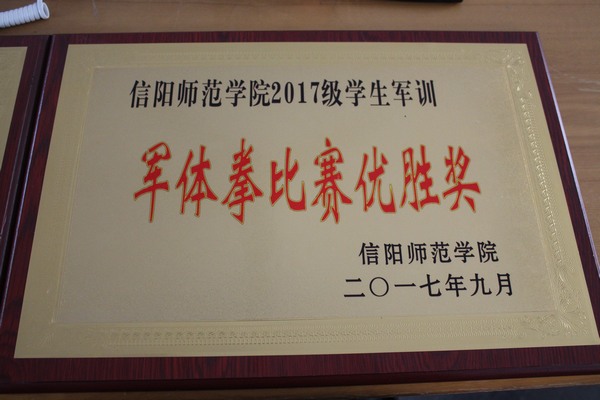 信阳师范学院2017级学生军训
军体拳比赛优胜奖
信阳师范学院
二〇一七年九月